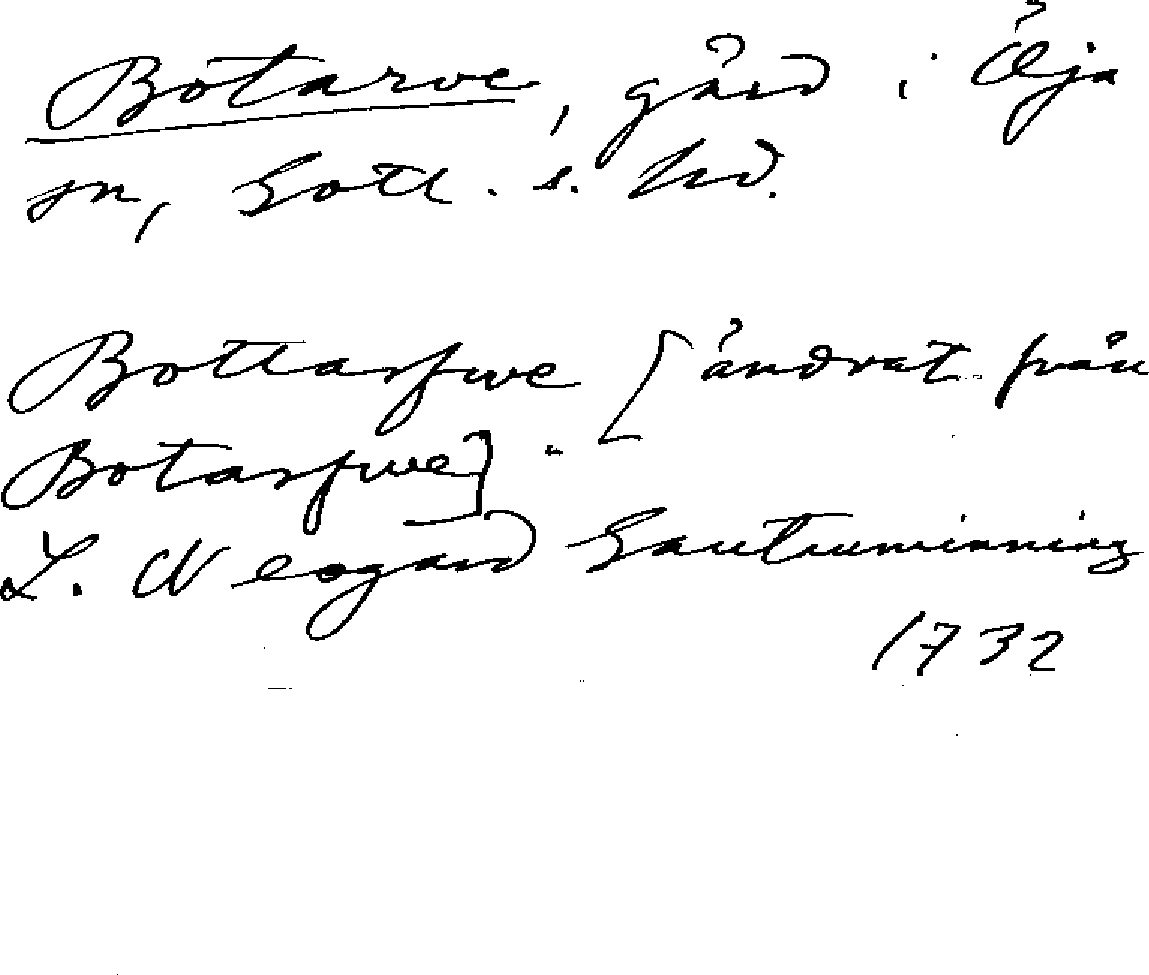 Botarve, gård i Öja
sn, Gotl. s. hd.
Bottarfwe [ändrat från
Botarfwe] .
L. Neogard Gautuminning
1732